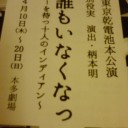 東京乾電池本公演
役実 演出・柄本明
誰もいなくなっ
ーを待つ十人のインディアン～
4月10日(木)～20日(日)
本多劇場